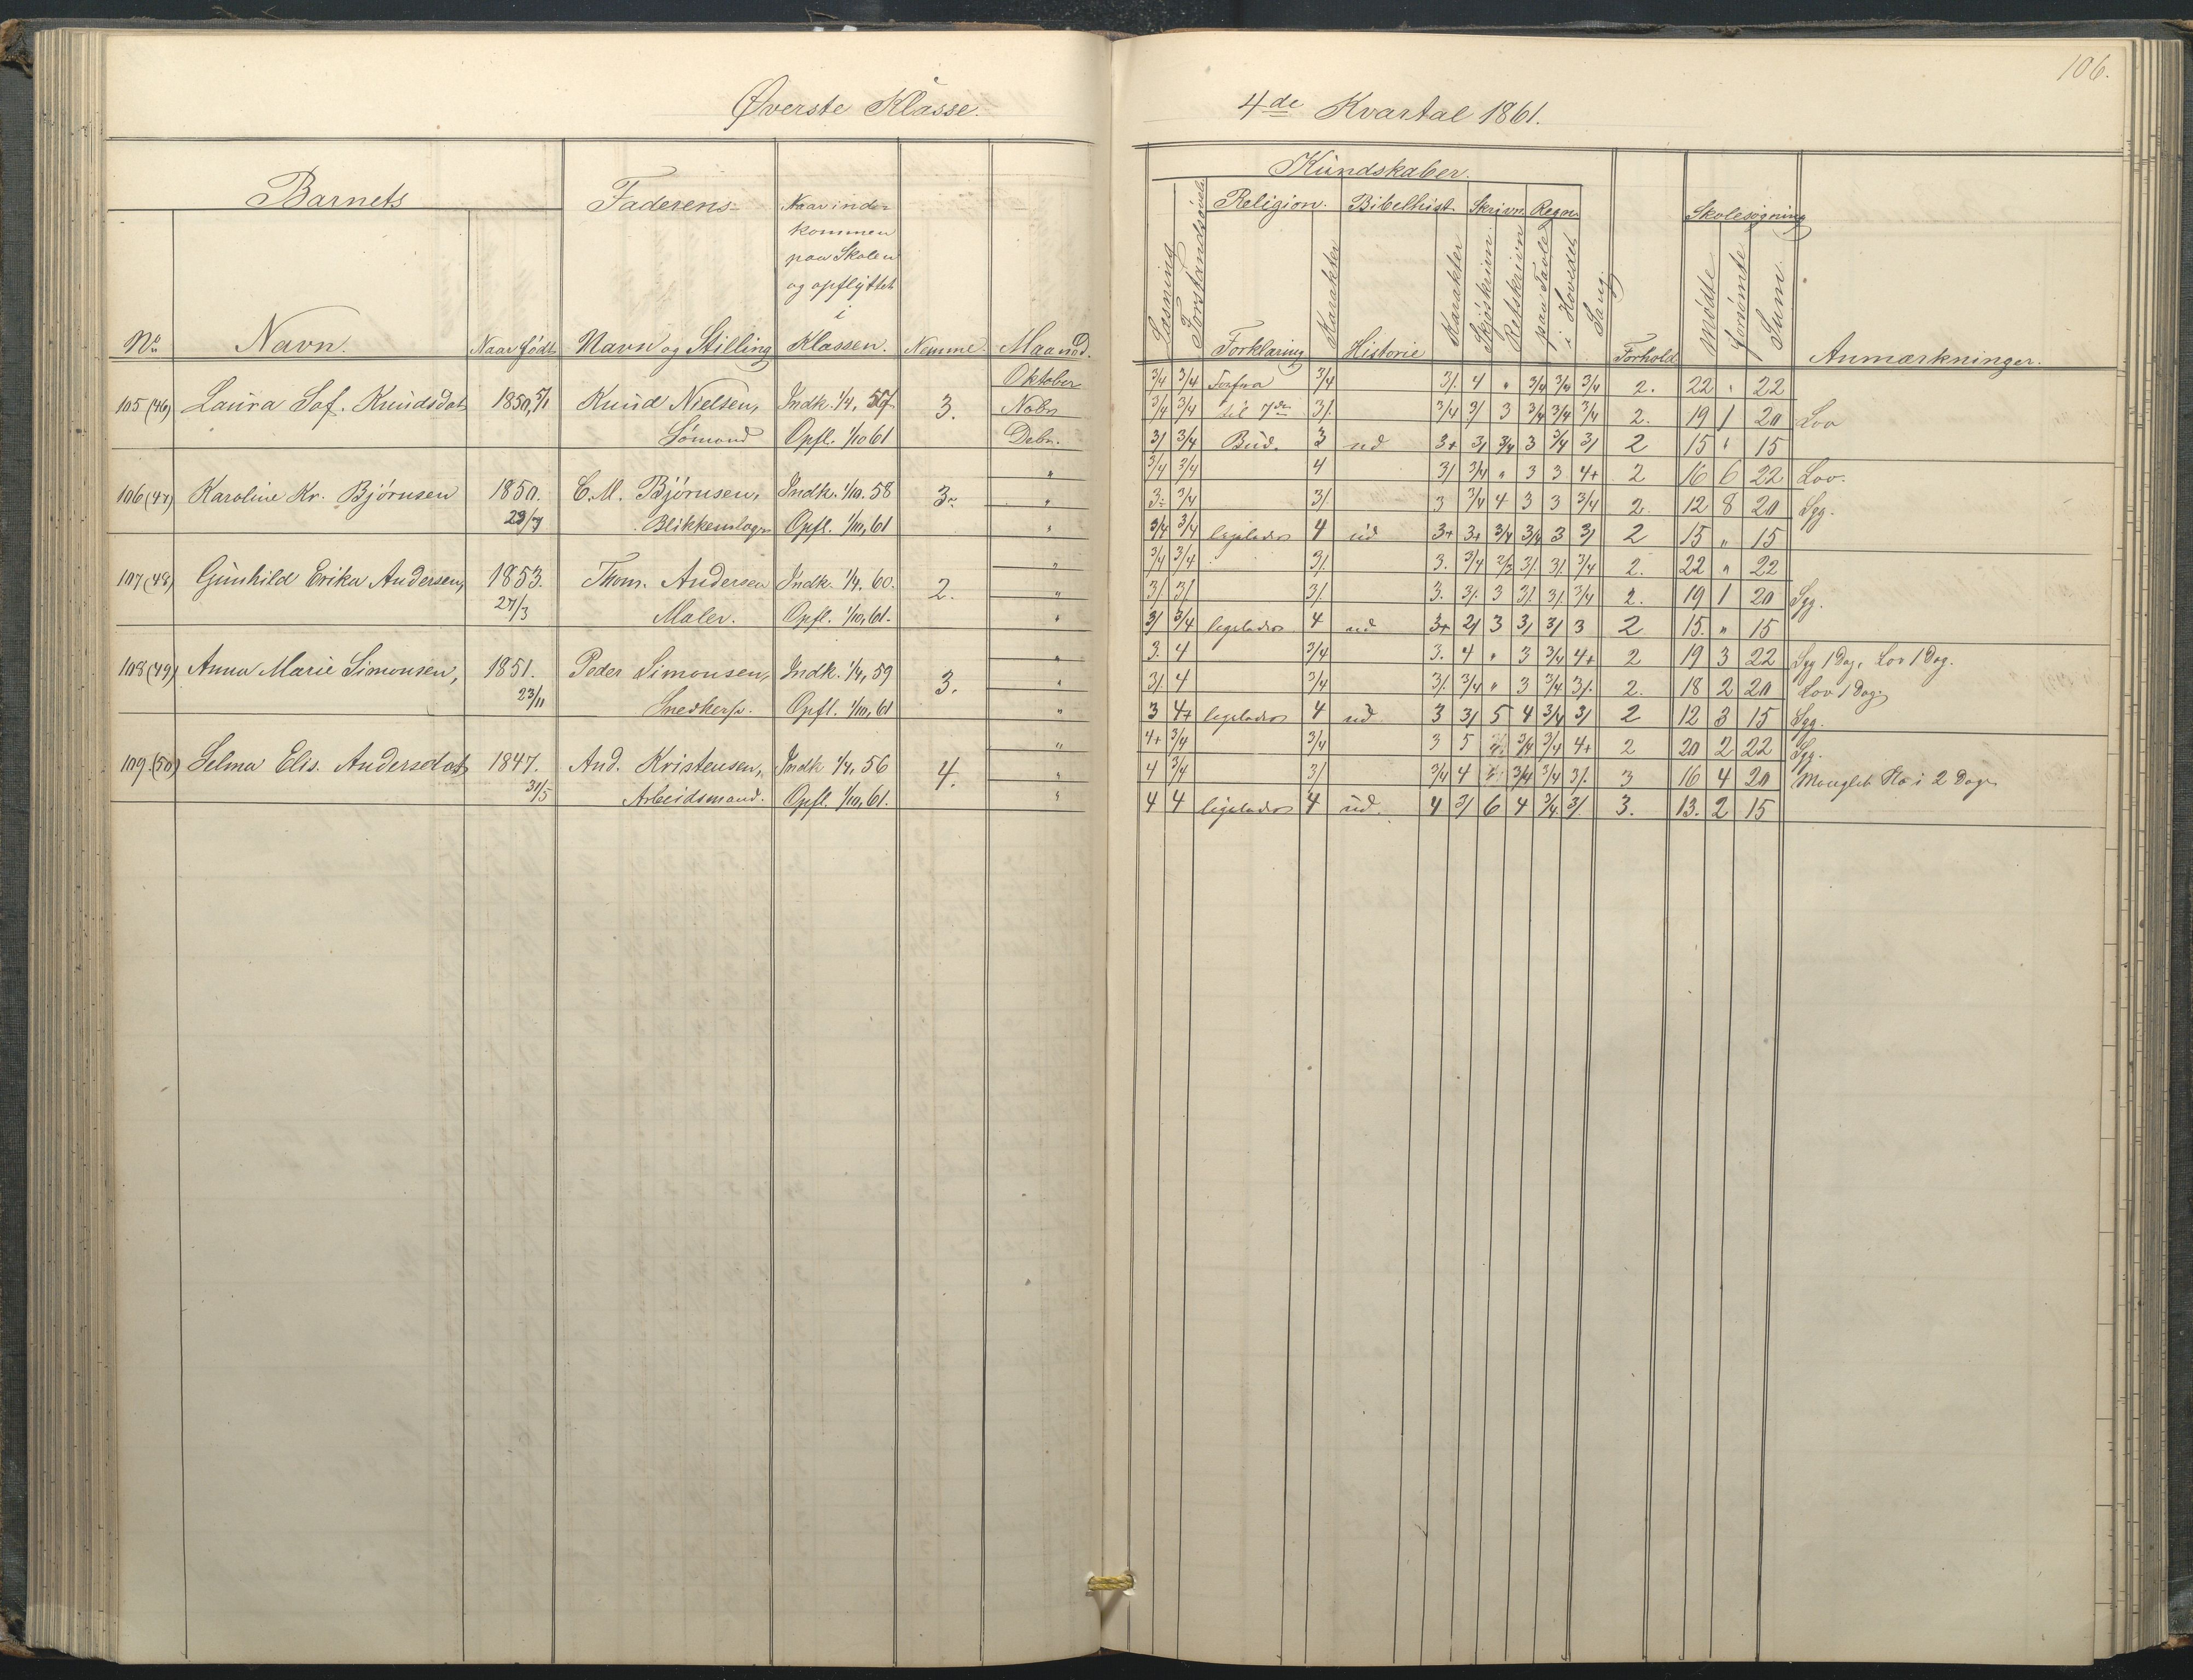 106.
Øverste Klasse.
4de Kvartal 1861.
Barnets
Faderens
Naar ind-
kommen
paa Skolen
og opflyttet
i
Klassen.
No
Navn.
Naar født
Navn og Stilling
Nemme.
Maaned.
Kundskaber.
Læsning
Forstandsøvelse
Religion.
Forklaring
Karakter
Bibelhist.
Historie
Karakter
Skrivn.
Skjönskrivn.
Retskrivn
Regn.
paa Tavle
i Hovedet
Sang
Forhold
Skolesøgning
Mödte
Forsömte
Sum.
Anmærkninger.
105 (46) Laura Sof. Knudsdat 1850, 5/1 Knud Nielsen, Indk. 1/4, 57 3. Oktober 3/4 3/4 Forfra 3/4 3/. 4 " 3/4 3/4 3/4 2. 22 " 22
Nobr 3/4 3/4 til 7de 3/. 3/4 3/ 3 3/4 3/4 3/4 2. 19 1 20 Lov
Sömand Opfl. 1/10 61 Debr. 3/ 3/4 Bud. 3 ud 3+ 3/ 3/4 3 3/4 3/ 2 15 " 15
106 (47) Karoline Kr. Bjørnsen 1850. C. M. Bjørnsen, Indk. 1/10. 58 3. " 3/4 3/4 4 3/ 3/4 " 3 3 4+ 2 16 6 22 Lov.
" 3. 3/4 3/. 3 3/4 4 3 3 3/4 2. 12 8 20 Syg.
23/7 Blikkenslager Opfl. 1/10, 61 " 3/4 3/4 ligeledes 4 ud 3+ 3+ 3/4 3/4 3 3/ 2 15 " 15
107 (48) Gunhild Erika Andersen, 1853. Thom. Andersen Indk. 1/4. 60. 2. " 3/4 3/4 3/. 3. 3/4 2/3 3/. 3/. 3/4 2. 22 " 22
" 3/. 3/. 3/. 3. 3/. 3 3/. 3/. 3/4 2. 19 1 20 Syg.
27/3 Maler. Opfl. 1/10, 61. " 3/ 3/4 ligeledes 4 ud 3+ 2/ 3 3/ 3/ 3 2 15. " 15
108 (49) Anna Marie Simonsen, 1851. Peder Simonsen, Indk. 1/4, 59 3. " 3. 4 3/4 3. 4 " 3 3/4 4+ 2 19 3 22 Syg 1 Dag, Lov 1 Dag.
" 3/. 4 3/4 3/. 3/4 " 3 3/4 3/. 2. 18 2 20 Lov 1 Dag.
23/11 Snedkersv. Opfl. 1/10, 61 " 3 4+ ligeledes 4 ud 3 3/ 5 4 3/4 3/ 2 12 3 15 Syg.
109 (50) Selma Elis. Andersdat 1847. And. Kristensen, Indk 1/4, 56 4. " 4+ 3/4 3/4 3 5 3/4 3/4 4+ 2 20 2 22 Syg.
" 4 3/4 3/ 3/4 4 3/4 3/4 3/. 3 16 4 20 Manglet Sko i 2 Dage
31/5 Arbeidsmand. Opfl. 1/10, 61. " 4 4 ligeledes 4 ud. 4 3/ 6 4 3/4 3/. 3. 13. 2 15